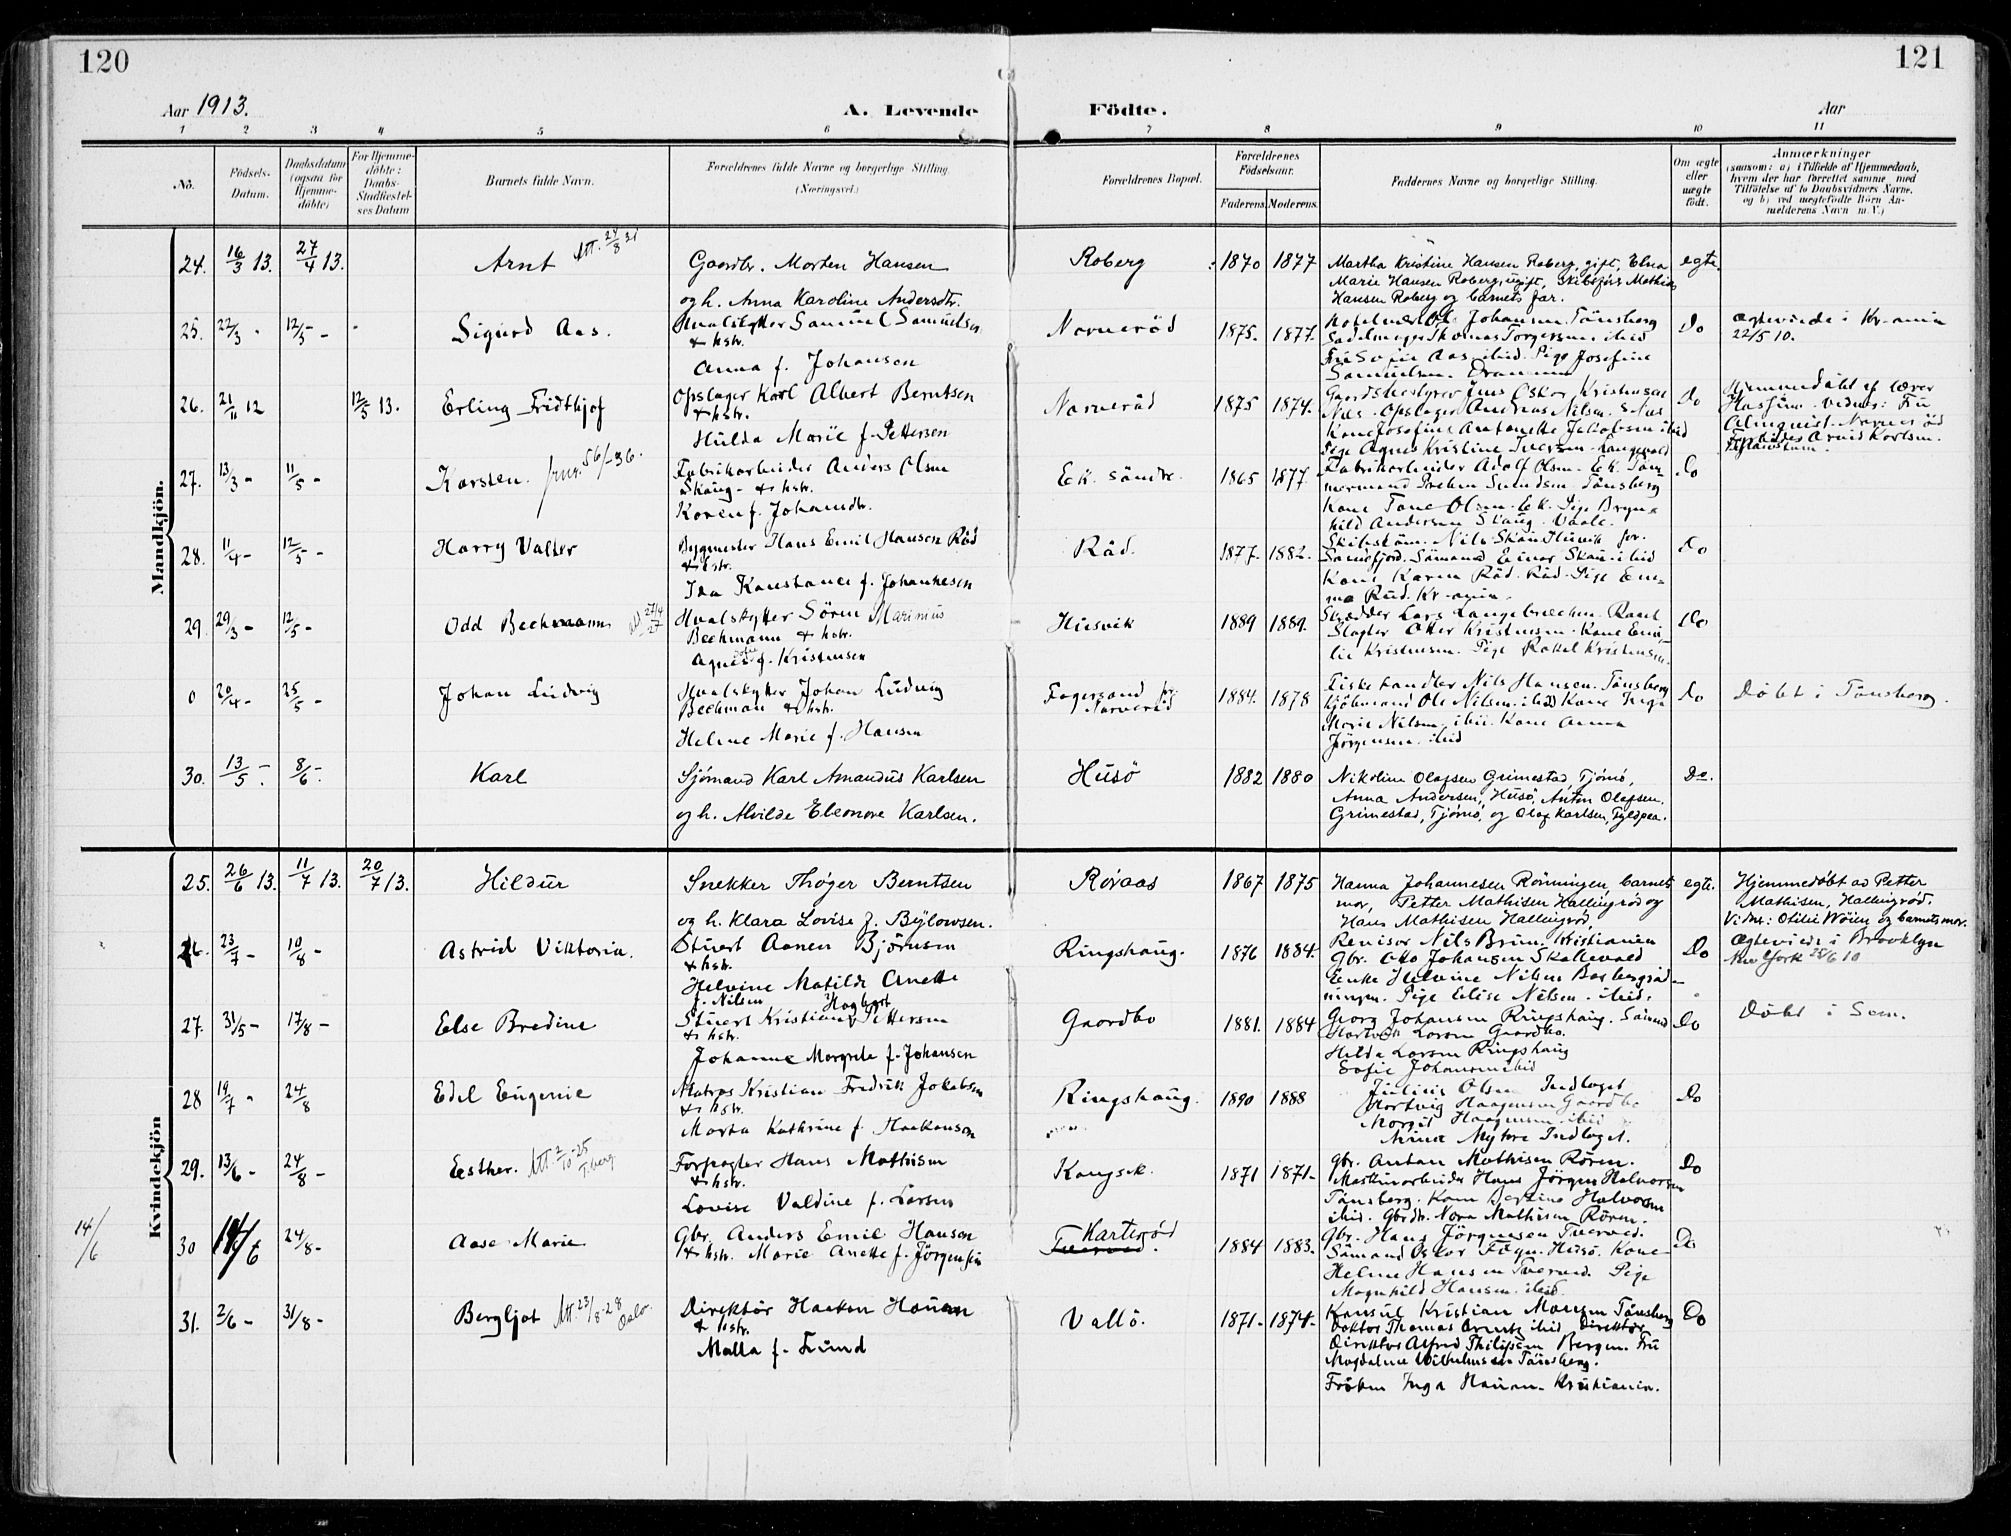 120
121
Aar 1913.
A. Levende Födte.
Aar
1 2 3 4 5 6 7 8 9 10 11
No.
Födsels-Datum.
Daabsdatum (ogsaa for Hjemme-döbte)
For Hjemme-döbte: Daabs-Stadfæstel-ses Datum
Barnets fulde Navn.
Forældrenes fulde Navne og borgerlige Stilling. (Næringsvei.)
Forældrenes Bopæl.
Forældrenes Födselsaar.
Faderens. Moderens.
Faddernes Navne og borgerlige Stilling.
Om ægte eller uægte födt.
Anmærkninger
(saasom: a) i Tilfælde af Hjemmedaab,
hvem der har forrettet samme med
Tilföielse af to Daabsvidners Navne,
og b) ved uægtefödte Börn An-
melderens Navn m. V.)
Mandkjön.
24. 16/3 13. 27/4 13. Arnt Att. 24/8 31
Gaardbr. Morten Hansen
og h. Anna Karoline Andersdtr.
Roberg 1870 1877
Martha Kristine Hansen Roberg, gift, Elna
Marie Hansen Roberg, ugift, Skibsförs Mathias
Hansen Roberg og barnets far.
egte.
25. 22/3 - 12/5 - Sigurd Aas.
Hvalskytter Samuel Samuelsen
& hstr.
Anna f. Johansen
Narverød 1875. 1877.
Johansen. Tönsberg
Sadelmager Thomas Torgersen ibid
Fru Sofie Aas ibid. Pige Josefine
Samuelsen. Drammen
Do
Ægteviede i Kr-ania
22/5 10.
26. 21/11 12 12/5 13. Erling Fridthjof
Opslager Karl Albert Berntsen
& hstr.
Hulda Marie f. Pettersen
Narveröd 1875 1874.
Gaardsbestyrer Jens Oskar Kristensen
Næs. Opslager Andreas Nilsen. S. Næs
Kone Josefine Antonette Jakobsen ibid
Pige Agnes Kristine Iversen. Langevald
Do
Hjemmedöbt af Lærer
Hassum. Vidner: Fru
Almquist. Narveröd
27. 13/3 - 11/5 - Karsten. 56/-36.
Fabrikarbeider Anders Olsen
Skaug - & hstr.
Karen f. Johansdtr.
Ek. söndre. 1865 1877.
Fabrikarbeider Adolf Olsen. Ek. Töm-
mermand Preben Svendsen. Tönsberg
Kone Tone Olsen. Ek. Pige Bryn-
hild Andersen Skaug. Vaale.
Do
28. 11/4 - 12/5 - Harry Valter
Bygmester Hans Emil Hansen Råd
& hstr.
Ida Konstance f. Johannesen
Råd. 1877. 1882.
Sandefjord. Sömand Einar Skau ibid
Kone Karen Råd. Råd. Pige Em-
ma Rud. Kr-ania.
Do
29. 29/3 - 12/5 - Odd Beckmann 27/4 27
Hvalskytter Sören Marinius
Beckmann & hstr.
Agnes Sofie f. Kristensen
Husvik 1889 1889.
Skrædder Lars Langebrekken. Rael
Slagter Otter Kristensen. Kone Emi-
lie Kristensen. Pige Rakel Kristensen.
Do
0 20/4 - 25/5 - Johan Ludvig
Hvalskytter Johan Ludvig
Beckman & hstr.
Helene Marie f. Hansen
Fagersand for. Narveröd 1884. 1878
Fiskehandler Nils Hansen. Tönsberg
Kjöbmand Ole Nilsen. ibid Kone Inga
Marie Nilsen. ibid. Kone Anna
Jörgensen. ibid
Do
Döbt i Tönsberg.
30. 13/5 - 8/6 - Karl
Sjömand Karl Amandus Karlsen
og h. Alvilde Eleonore Karlsen.
Husö 1882 1880
Nikoline Olafsen Grimestad, Tjömö,
Anna Andersen, Husö, Anton Olafsen.
Grimestad, Tjömö, og Olaf Karlsen, Fyldpaa.
Do.
Kvindekjön
25. 26/6 13. 11/7 13. 20/7 13. Hildur
Snekker Thøger Berntsen
og h. Klara Lovise f. Bylowsen.
Røraas 1867 1875
Hanna Johannesen Rönningen, barnets
mor, Petter Mathisen Hallingrød og
Hans Mathisen Hallingrød,
egte.
Hjemmedøbt av Petter
Mathisen, Hallingrød.
Vidnr: Otilie Wöien og barnets mor.
26. 23/7 - 10/8 - Astrid Viktoria.
Stuert Aanen Björnsen
& hstr.
Helvine Matilde Anette
f. Nilsen
Ringshaug. 1876 1884.
Revisor Nils Brun. Kristiania
Gbr. Otto Johansen Skallevald
Enke Helvine Nilsen Basbergröd-
ningen. Pige Elise Nilsen. ibid.
Do
Ægteviede i Brooklyn
New York 25/6 10
27. 31/5 - 17/8 - Else Bredine
Stuert Kristian Hagbart Pettersen
& hstr.
Johanne Margrete f. Johansen
Gaardbo 1881. 1884
Georg Johansen Ringshaug. Sömand
Hartvik Larsen Gaardbo.
Hilda Larsen Ringshaug
Sofie Johansen ibid
Do
Döbt i Sem.
28 19/7 - 24/8 Edel Eugenie
Matros Kristian Fredrik Jakobsen
& hstr.
Marta Kathrine f. Haakonsen
Ringshaug. 1890 1888
Julius Olsen Indlaget
Hartvig Haagensen Gaardbo
Margit Haagensen ibid
Anna Myhre Indlaget.
Do
29. 13/6 - 24/8 - Esther. Att. 2/10-25 T.berg
Forpagter Hans Mathisen
& hstr.
Lovise Valdine f. Larsen
Kongsek. 1871 1871-
Gbr. Anton Mathisen Rören.
Maskinarbeider Hans Jörgen Halvorsen
Tönsberg. Kone Halvorsen
ibid. Gbrdtr. Nora Mathisen Rören.
Do
14/6
30 14/6 24/8- Aase Marie
Gbr. Anders Emil Hansen
& hstr. Marie Anette f. Jörgensen
Karteröd
Tverved. 1884 1883.
Gbr. Hans Jörgensen Tverved.
Sömand Oskar Husö. Kone
Helene Hansen Tverved. Pige
Magnhild Hansen. ibid.
Do
31. 2/6 - 31/8 - Bergljot Att. 23/8-28 Oslo.
Direktör Haakon Hauan
& hstr.
Malla f. Lund
Vallö. 1871- 1874-
Konsul Kristian Monsen Tönsberg
Doktor Thomas Arntz ibid Direktör
Direktör Alfred Philipsen Bergen. Fru
Magdalene Wilhelmsen Tönsberg.
Fröken Inga Hauan. Kristiania.
Do